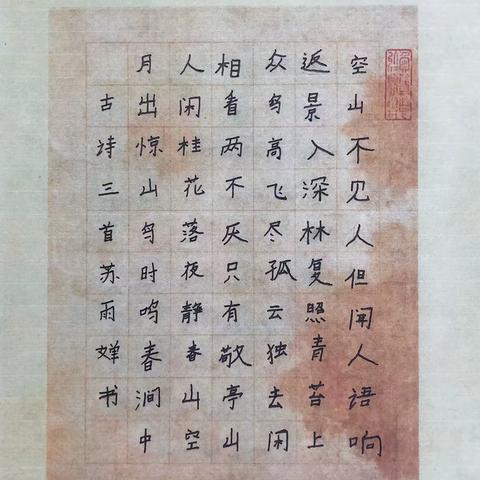 空山不见人但闻人语响
返景入深林复照青苔上
众鸟高飞尽孤云独去闲
相看两不灰只有敬亭山
人闲桂花落夜静春山空
月出惊山鸟时鸣春涧中
古诗三首苏雨婵书